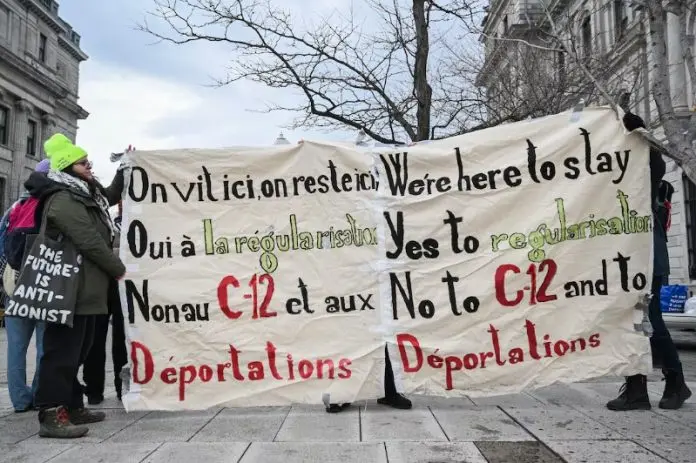 On vit ici, on reste ici,
Oui à la régularisation
Non au C-12 et aux
Déportations
We're here to stay
Yes to regularisation
No to C-12 and to
Déportations
THE
FUTURE
IS
ANTI-
ZIONIST